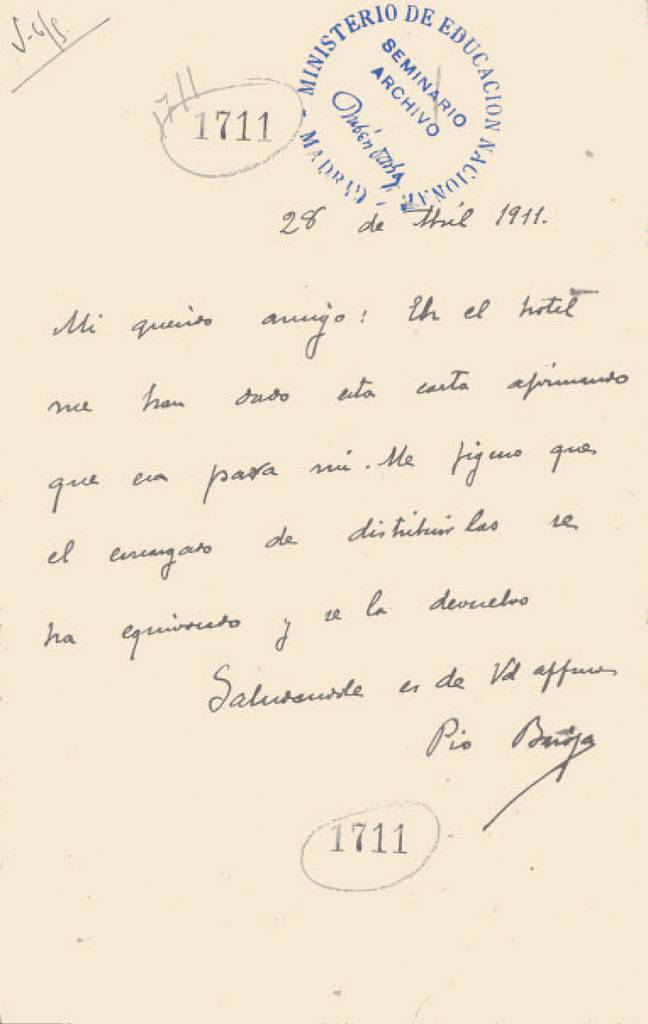 V-6/5.
1711
1711
MINISTERIO DE EDUCACION NACIONAL - MADRID -
SEMINARIO
ARCHIVO
Rubén Darío
28 de Abril 1911.
Mi querido amigo: En el hotel
me han dado esta carta afirmando
que era para mi. Me figuro que
el encargado de distribuirlas se
ha equivocado y se la devuelvo
Saludandole es de Vd affmo
Pio Baroja
1711